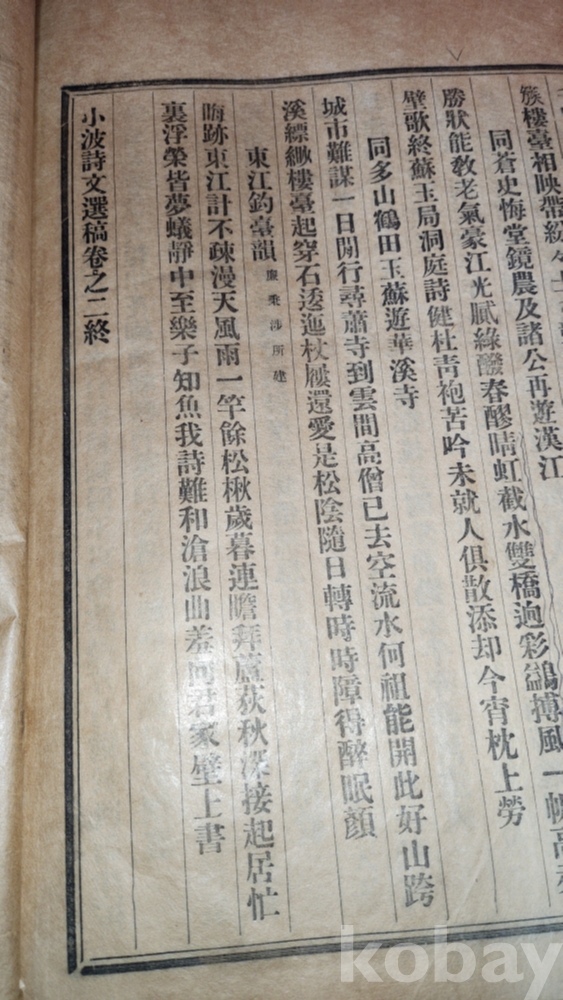 簇樓臺相映帶紛々士
同蒼史悔堂鏡農及諸公再遊漢江
勝狀能敎老氣豪江光膩綠醱春醪晴虹截水雙橋逈彩鷁搏風一帆高赤
壁歌終蘇玉局洞庭詩健杜靑袍苦吟未就人俱散添却今宵枕上勞
同多山鶴田玉蘇遊華溪寺
城市難謀一日閒行尋蕭寺到雲間高僧已去空流水何祖能開此好山跨
溪縹緲樓臺起穿石透迤杖屨還愛是松陰隨日轉時時障得醉眠顔
東江釣臺韻 廉秉涉所建
晦跡東江計不疎漫天風雨一竿餘松楸歲暮連瞻拜蘆荻秋深接起居忙
裏浮榮皆夢蟻靜中至樂子知魚我詩難和滄浪曲羞向君家壁上書
小波詩文選稿卷之二終
kobay